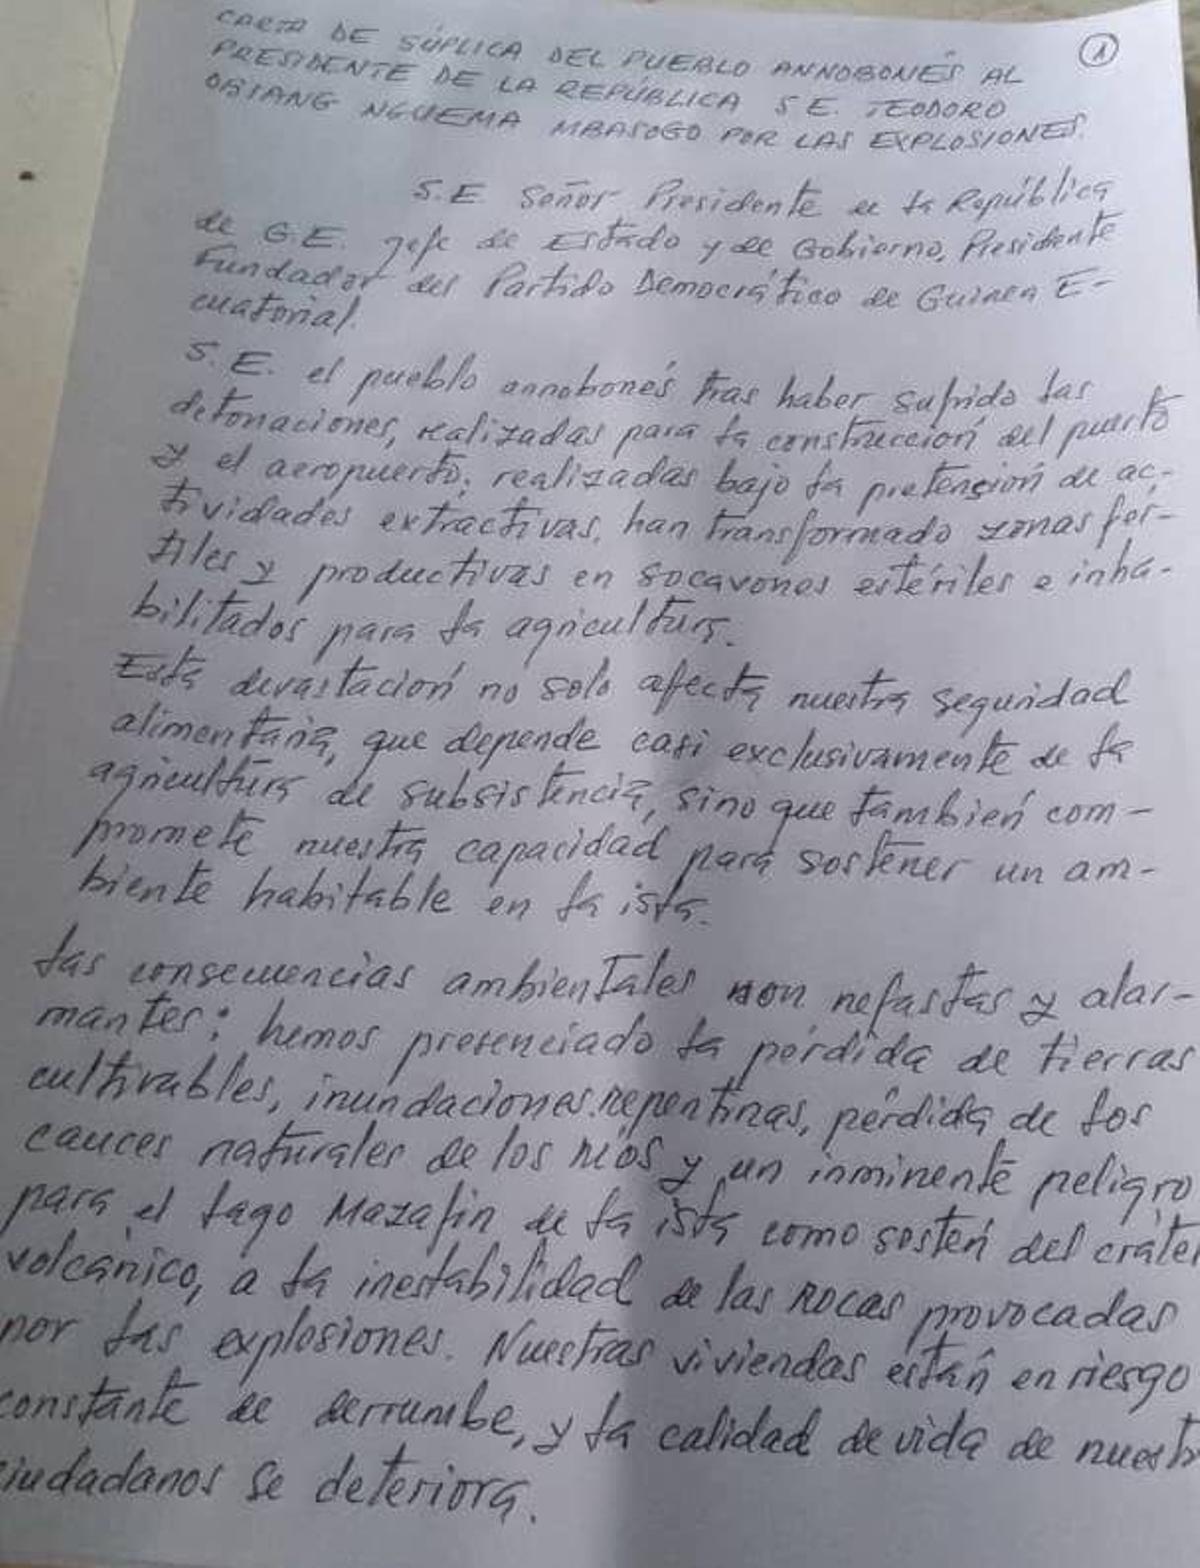 CARTA DE SÚPLICA DEL PUEBLO ANNOBONÉS AL
PRESIDENTE DE LA REPÚBLICA S.E. TEODORO
OBIANG NGUEMA MBASOGO POR LAS EXPLOSIONES.
1
S.E Señor Presidente de la República
de G.E. Jefe de Estado y de Gobierno, Presidente
Fundador del Partido Democrático de Guinea E-
cuatorial.
S.E. el pueblo annobonés tras haber sufrido las
detonaciones, realizadas para la construcción del puerto
y el aeropuerto; realizadas bajo la pretención de ac-
tividades extractivas, han transformado zonas fér-
tiles y productivas en socavones estériles e inha-
bilitados para la agricultura.
Esta devastación no solo afecta nuestra seguridad
alimentaria, que depende casi exclusivamente de la
agricultura de subsistencia, sino que también com-
promete nuestra capacidad para sostener un am-
biente habitable en la isla.
Las consecuencias ambientales son nefastas y alar-
mantes: hemos presenciado la pérdida de tierras
cultivables, inundaciones repentinas, pérdida de los
cauces naturales de los ríos y un inminente peligro
para el lago Mazafin de la isla como sostén del cráter
volcánico, a la inestabilidad de las rocas provocadas
por las explosiones. Nuestras viviendas están en riesgo
constante de derrumbe, y la calidad de vida de nuestr
ciudadanos se deteriora.